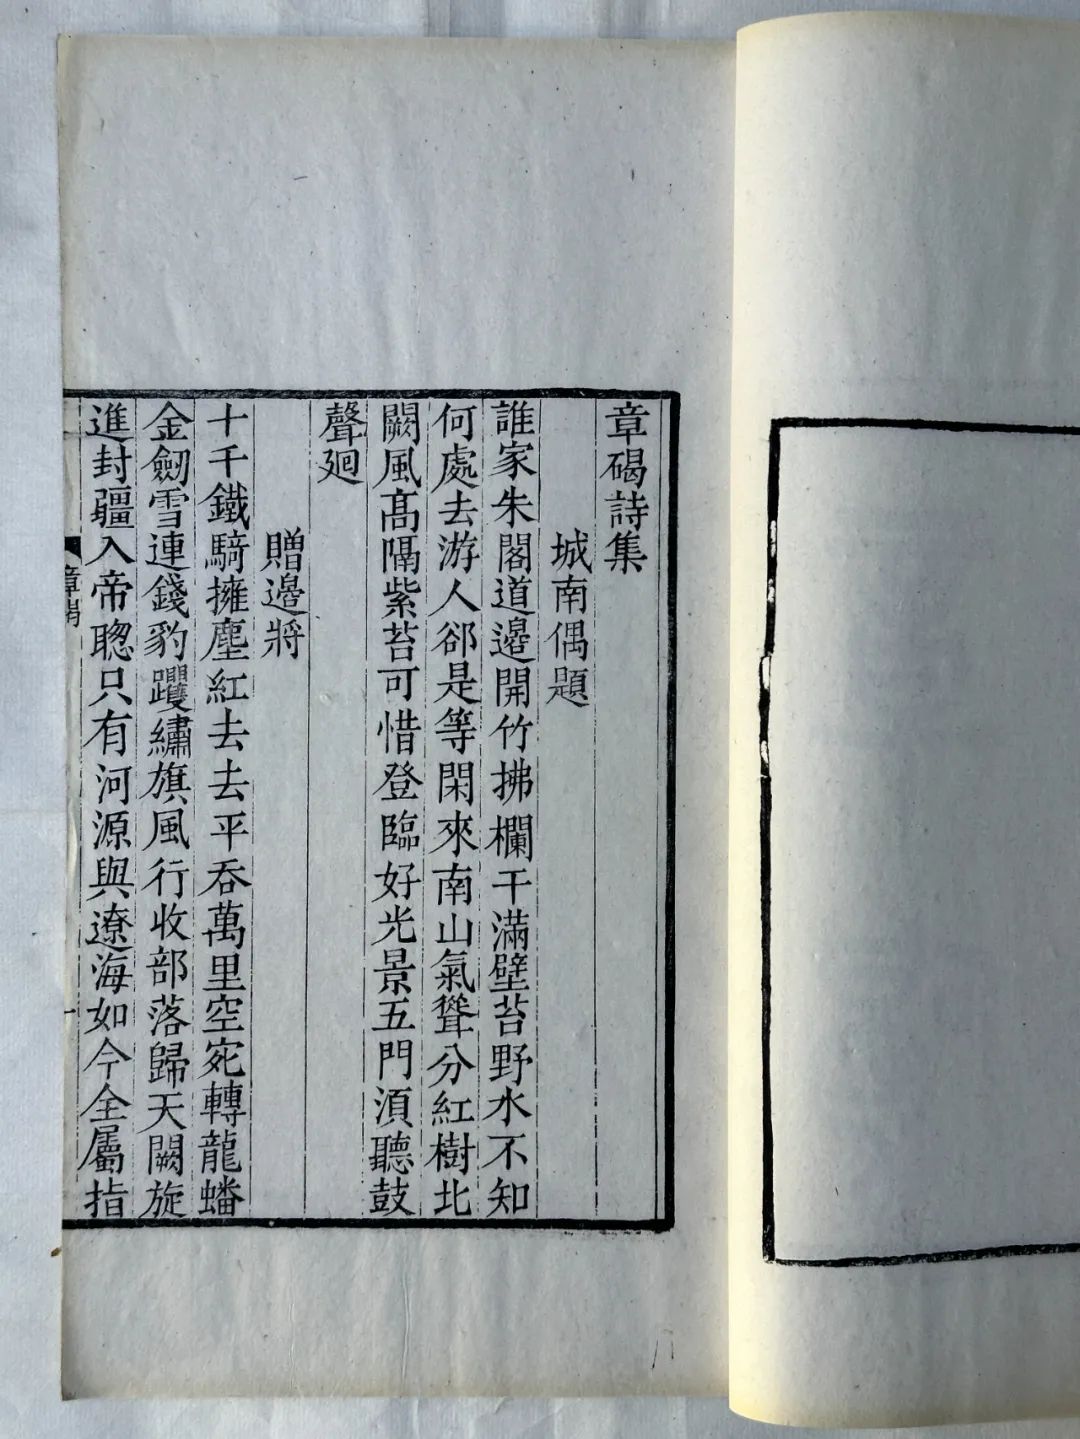 章碣詩集
城南偶題
誰家朱閣道邊開竹拂欄干滿壁苔野水不知
何處去游人郤是等閑來南山氣聳分紅樹北
闕風髙隔紫苔可惜登臨好光景五門湏聽鼓
聲廻
贈邊將
十千鐵騎擁塵紅去去平吞萬里空宛轉龍蟠
金劒雪連錢豹躩繡旗風行收部落歸天闕旋
進封疆入帝聦只有河源與遼海如今全屬指
章碣
一